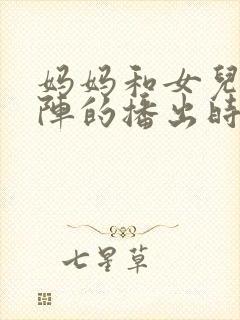 妈妈和女兒
陣的播出時
七星草